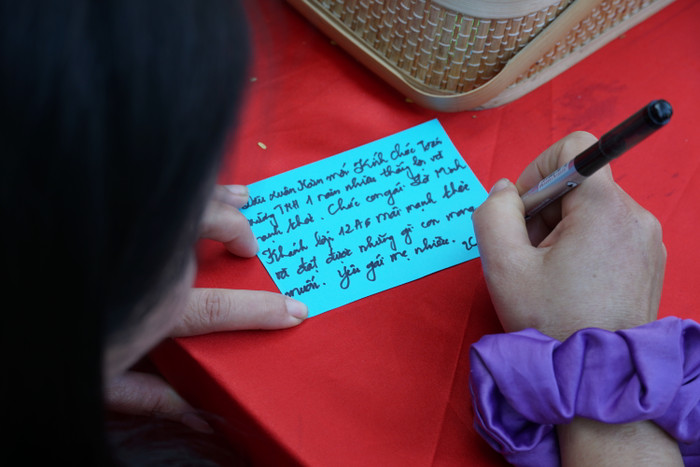 Xuân mới Kính chúc Toàn
trường THA 1 năm nhiều thắng lợi và
thành đạt. Chúc con gái Minh
Khánh lớp 12A6 mãi mạnh khỏe
và đạt được những gì con mong
muốn. Yêu gái mẹ nhiều.